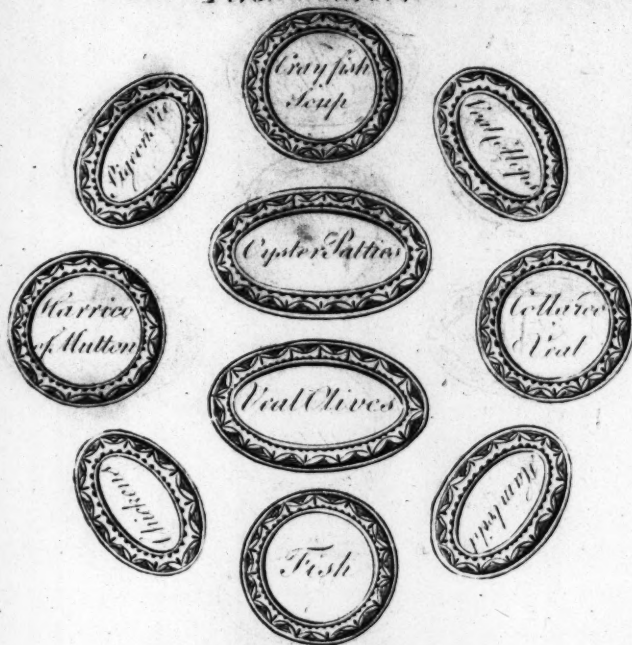 Crayfish
Soup
Pigeon Pie
Veal Collops
Oyster Patties
Harrico
of Mutton
Collared
Veal
Veal Olives
Chickens
Fish